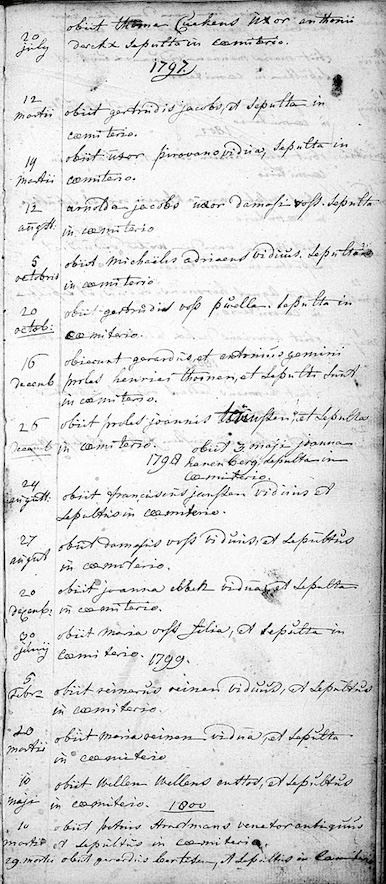 20 july
obiit Uxor anthonii
sepulta in cœmiterio.
1797
12 martii
obiit gertrudis jacobs, et sepulta in
cœmiterio.
19 martii
obiit uxor pirovano vidua, sepulta in
cœmiterio.
12 augst.
arnolda jacobs uxor damasi voss. sepulta
in cœmiterio
5 octobris
obiit michaeles adriaens viduus. sepultus
in cœmiterio
20 octob:
obiit gertrudis voss puella. sepulta in
cœmiterio.
16 decemb
obierunt gerardus, et antonius gemini
proles henrici thomen, et sepulti sunt
in cœmiterio.
26 decemb
obiit proles joannis et sepultus
in cœmiterio.
1798
obiit 3 maji joanna
hanenberg, sepulta in
cœmiterio
24 augusti
obiit franciscus janssen viduus et
sepultus in cœmiterio.
27 august
obiit damasus voss viduus, et sepultus
in cœmiterio.
20 decemb:
obiit joanna ebbek vidua, et sepulta
in cœmiterio.
30 junij
obiit maria voss filia, et sepulta in
cœmiterio. 1799.
5 febr
obiit reinerus reinen viduus, et sepultus
in cœmiterio.
20 martii
obiit maria reinen vidua, et sepulta
in cœmiterio
10 maji
obiit Willem Wellens et sepultus
in cœmiterio. 1800
10 martii
obiit petrus venator antiquus
et sepultus in cœmiterio.
29 martii obiit gerardus et sepultus in cœmiterio